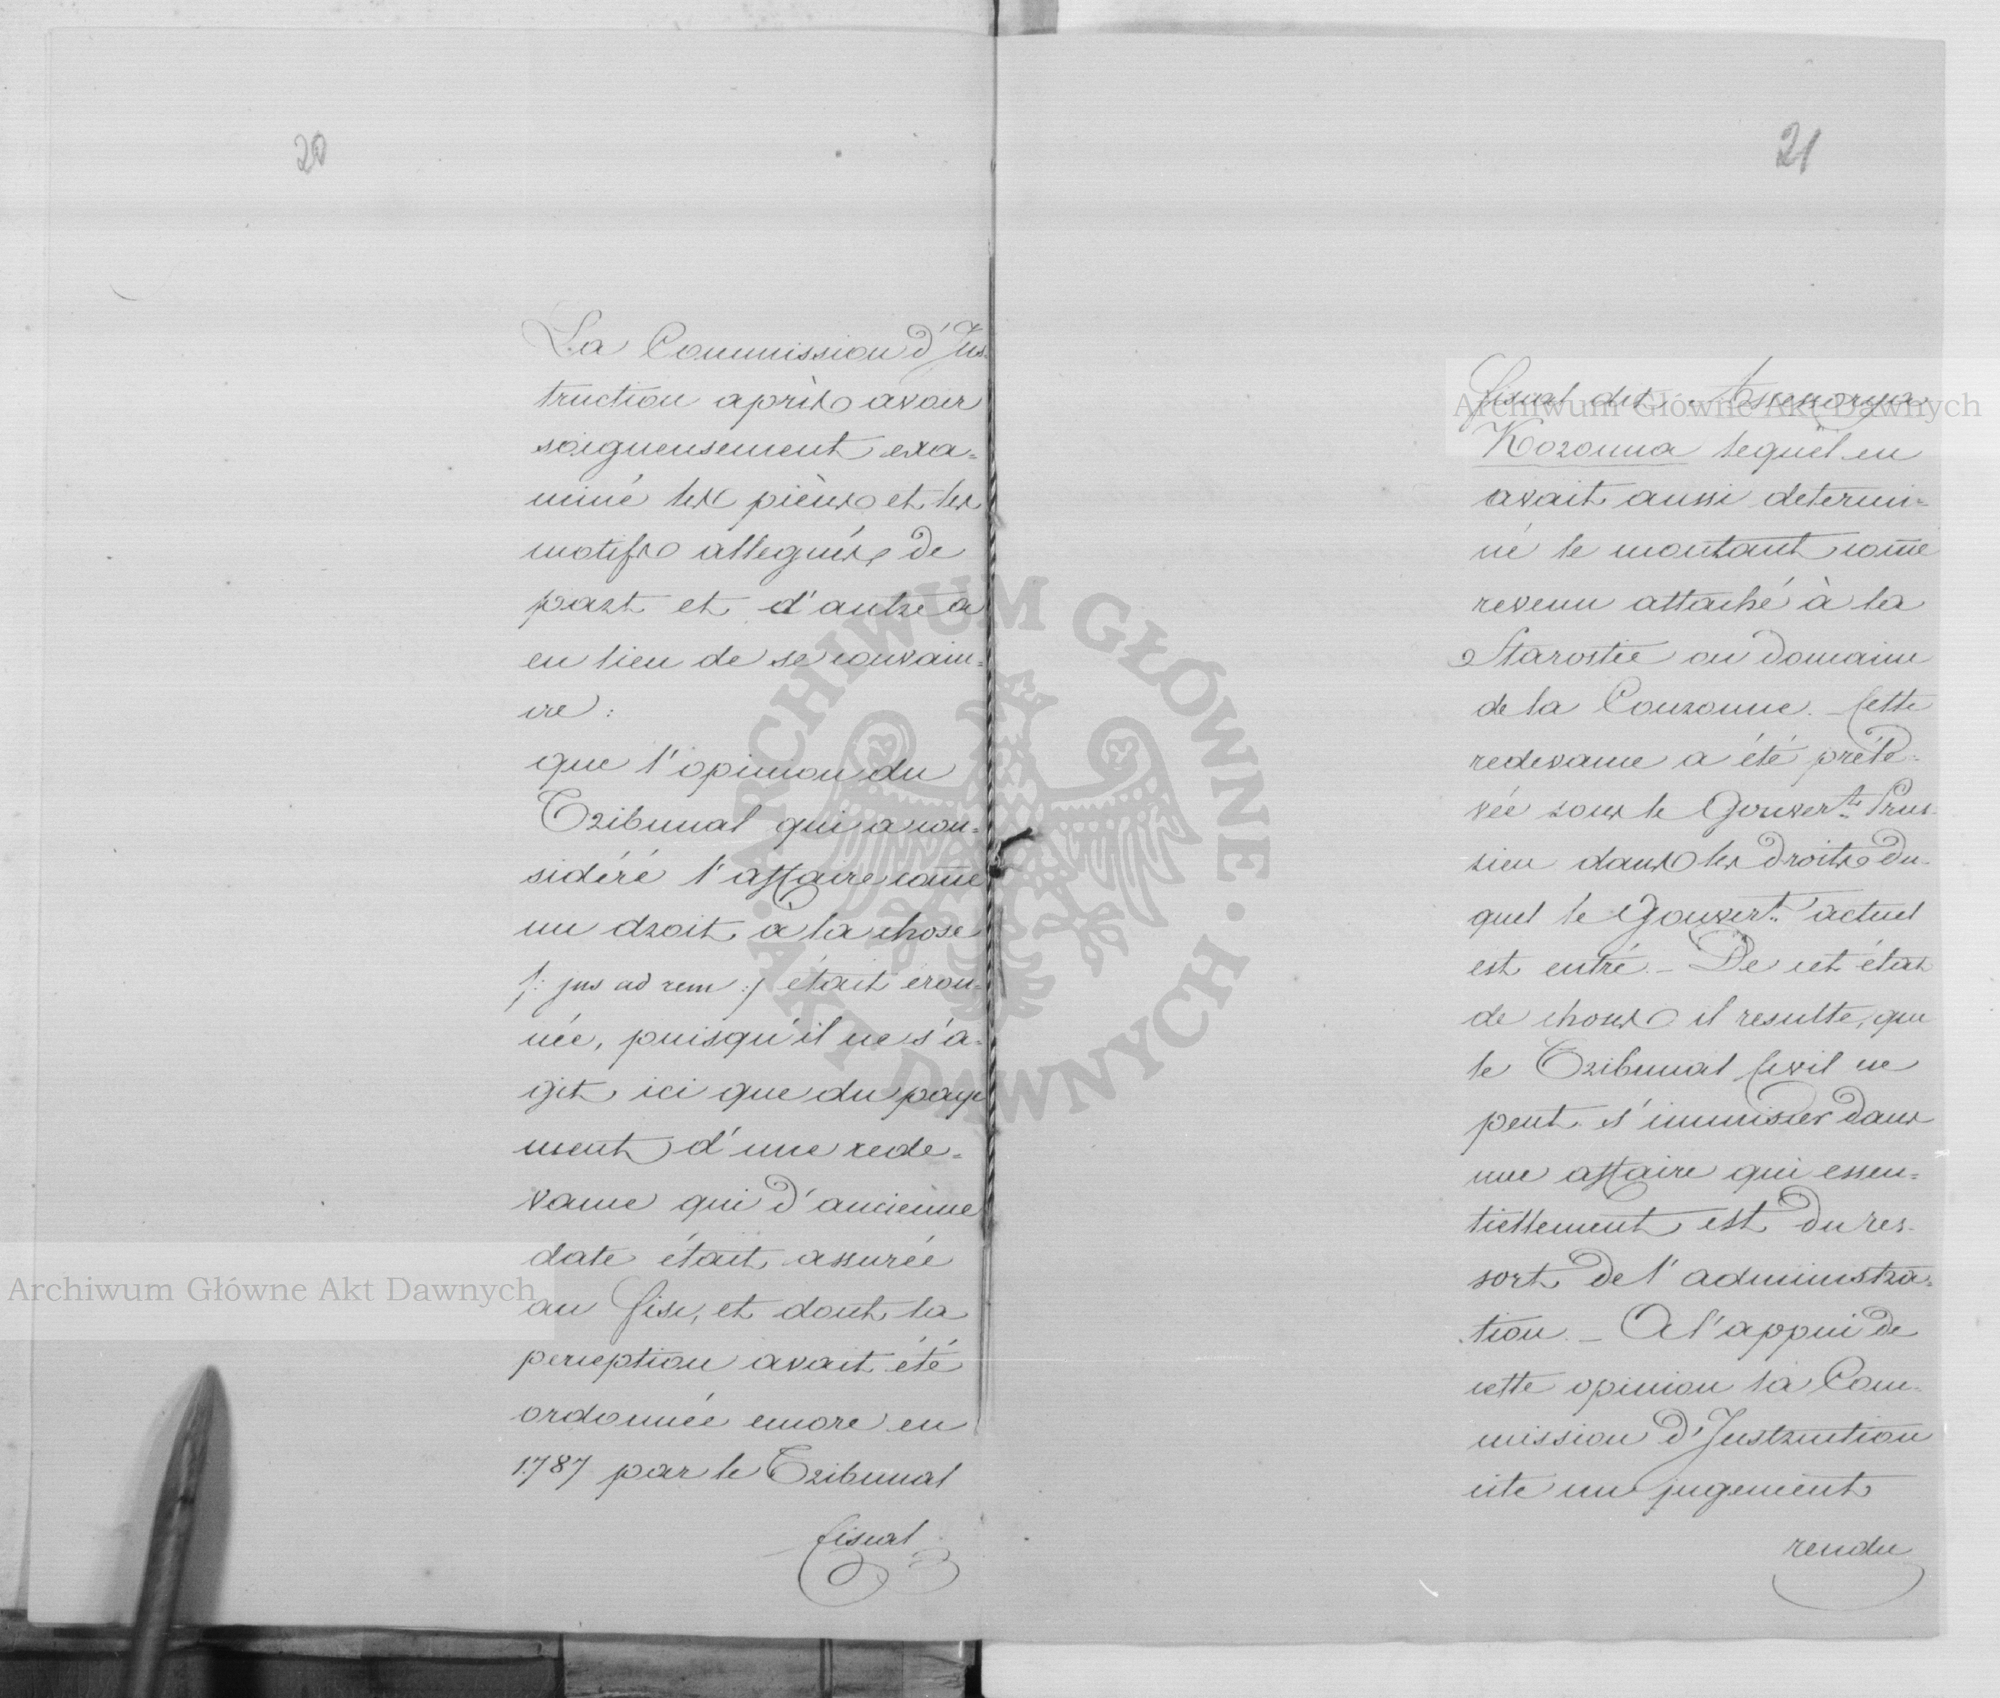 20
La Commission d'Ins-
truction après avoir
soigneusement exa=
miné les pièces et les
motifs allegués de
part et d'autre a
eu lieu de se convain=
cre :
que l'opinion du
Tribunal qui a con=
sidéré l'affaire come
un droit à la chose
/: jus ad rem :/ était erron-
née, puisqu'il ne s'a=
git ici que du paye
ment d'une rede=
vance qui d'ancienne
date était assurée
au fisc, et dont la
perception avait été
ordonnée encore en
1787 par le Tribunal
fiscal
21
fiscal dit Assessorya
Koronna lequel en
avait aussi determi=
né le montant come
revenu attaché à la
Starostie ou domaine
de la Couronne. _ Cette
redevance a été préle=
vée sous le Gouvert. Prus-
sien dans les droits du-
quel le Gouvert. actuel
est entré. _ De cet état
de choses il resulte, que
le Tribunal Civil ne
peut s'immiscer dans
une affaire qui essen=
tiellement est du res-
sort de l'administra=
tion. _ A l'appui de
cette opinion la Com-
mission d'Instruction
cite un jugement
rendu
Archiwum Główne Akt Dawnych
Archiwum Główne Akt Dawnych
ARCHIWUM GŁÓWNE · AKT DAWNYCH ·